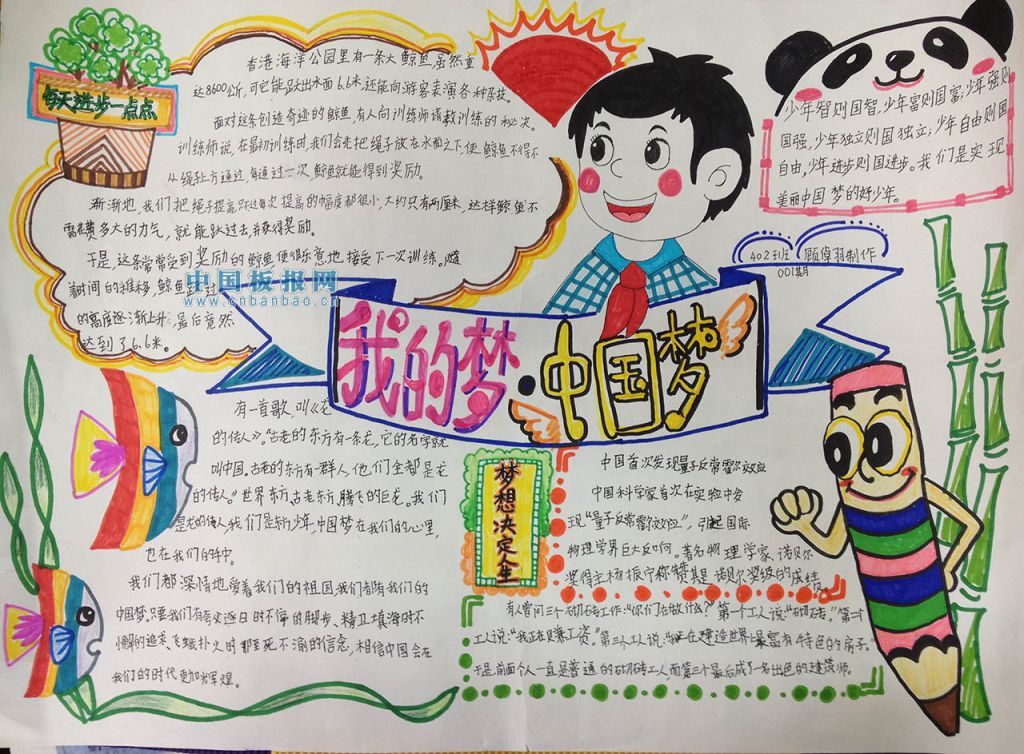 每天进步一点点
香港海洋公园里有一条大鲸鱼,虽然重
达8600公斤,可它能跃出水面6.6米,还能向游客表演各种杂技。
面对这条创造奇迹的鲸鱼,有人向训练师请教训练的秘诀。
训练师说,在最初训练时,我们会先把绳子放在水面之下,使鲸鱼不得不
从绳子上方通过,每通过一次,鲸鱼就能得到奖励。
渐渐地,我们把绳子提高,只不过每次提高的幅度都很小,大约只有两厘米,这样鲸鱼不
需花费多大的力气,就能跃过去,并获得奖励。
于是,这条常常受到奖励的鲸鱼便很乐意地接受下一次训练。随
着时间的推移,鲸鱼跃过
的高度逐渐上升,最后竟然
达到了6.6米。
中国板报网
www.cnbanbao.cn
少年智则国智,少年富则国富;少年强则
国强,少年独立则国独立;少年自由则国
自由,少年进步则国进步。我们是实现
美丽中国梦的好少年。
402班
001期
制作
我的梦·中国梦
有一首歌,叫《龙
的传人》。“古老的东方有一条龙,它的名字就
叫中国,古老的东方有一群人,他们全都是龙
的传人。”世界东方,古老东方,腾飞的巨龙。我们
是龙的传人,我们是新少年,中国梦在我们的心里,
也在我们的手中。
我们都深情地爱着我们的祖国,我们都有我们的
中国梦。只要我们有夸父逐日时不停的脚步、精卫填海时不
懈的追求、飞蛾扑火时那至死不渝的信念,相信中国会在
我们的时代更加光辉煌。
梦想决定人生
中国首次发现量子反常霍尔效应
中国科学家首次在实验中发
现“量子反常霍尔效应”,引起国际
物理学界巨大反响。著名物理学家、诺贝尔
奖得主杨振宁称赞其是诺贝尔奖级的成绩。
有人曾问三个砌砖工作:“你们在做什么?”第一个工人说:“砌砖。”第二个
工人说:“我正在赚工资。”第三个工人说:“正在建造世界上最富有特色的房子。”
于是前面个人一直是普通的砌砖工人,而第三个最后成了一名出色的建筑师。